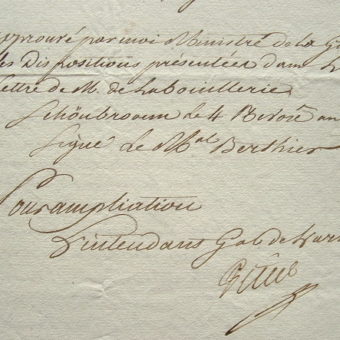 approuvé par moi Ministre de la G
les Dispositions présentées dans L
Lettre de M. de Labouillerie
Schönbrounn le 4 Nivose an
Signé le Mal Berthier
Pour ampliation
L'intendant Gal de l'ar